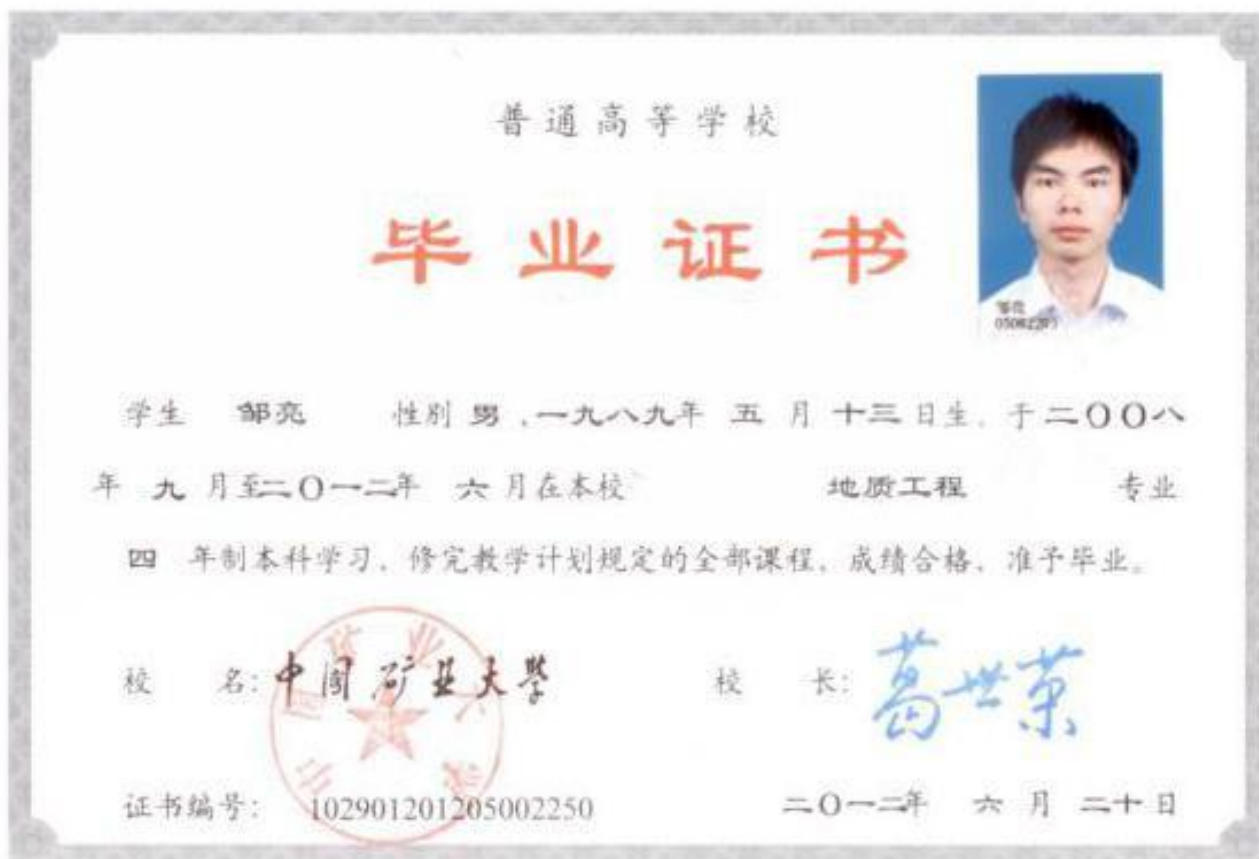 普通高等学校
毕业证书
学生 邹亮 性别 男，一九八九年 五 月 十三 日生，于 二〇〇八
年 九 月至 二〇一二年 六 月在本校 地质工程 专业
四 年制本科学习，修完教学计划规定的全部课程，成绩合格，准予毕业。
校 名：中国矿业大学
校 长：葛世荣
证书编号： 102901201205002250
二〇一二年 六 月 二十 日